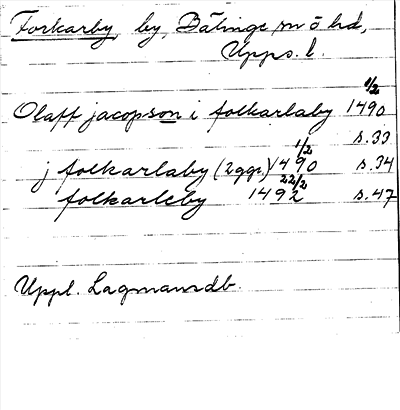 Forkarby by, Bälinge sn ö hd,
Upps. l.
1/2
Olaff jacopson i folkarlaby 1490
s.33
1/2
j folkarlaby (2 ggr) 1490 s.34
22/2
folkarleby 1492 s.47
Uppl. Lagmansdb.